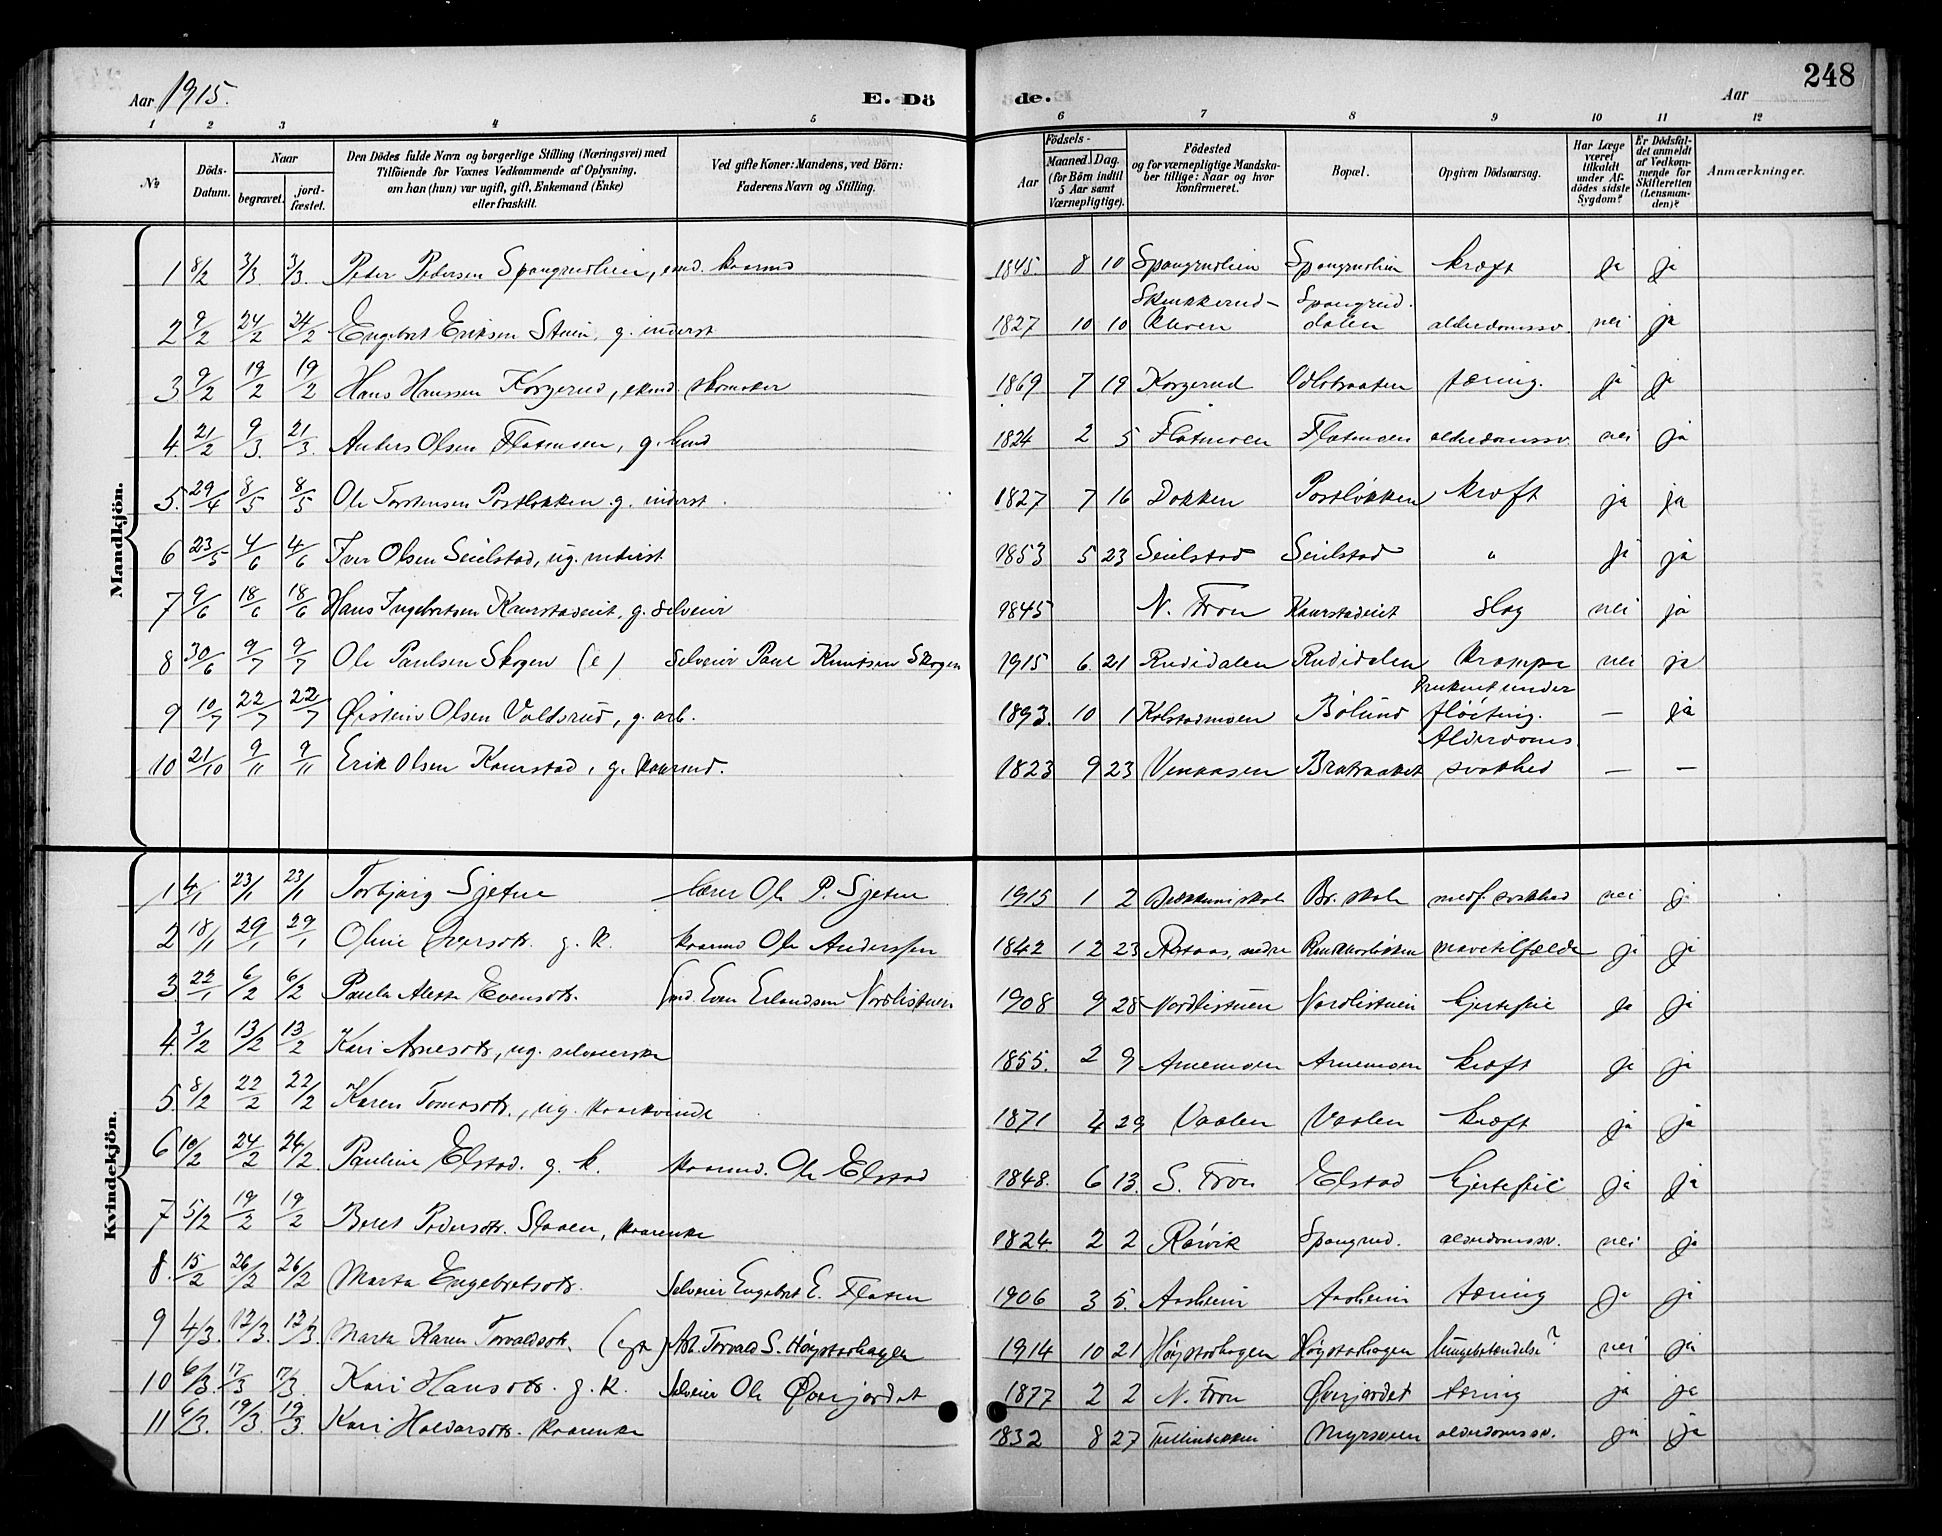 248
Aar 1915. E. Dö de. Aar
1 2 3 4 5 6 7 8 9 10 11 12
No
Döds-Datum.
Naar
begravet.
jord-fæstet.
Den Dödes fulde Navn og borgerlige Stilling (Næringsvei) med
Tilföiende for Voxnes Vedkommende af Oplysning,
om han (hun) var ugift, gift, Enkemand (Enke)
eller fraskilt.
Ved gifte Koner: Mandens, ved Börn:
Faderens Navn og Stilling.
Födsels-
Aar
Maaned. Dag.
(for Börn indtil
5 Aar samt
Værnepligtige).
Födested
og for værnepligtige Mandska-
ber tillige: Naar og hvor
konfirmeret.
Bopæl.
Opgiven Dödsaarsag.
Har Læge
været
tilkaldt
under Af-
dödes sidste
Sygdom?
Er Dödsfal-
det anmeldt
af Vedkom-
mende for
Skifteretten
(Lensman-
den)?
Anmærkninger.
Mandkjön.
1 8/2 3/3 3/3 Peder Pedersen Spangrudlien, kaarmd 1845 8 10 Spangrudlien Spangrudlien kræft ja ja
2 9/2 24/2 24/2 Engebret Eriksen Stuen, g. inderst 1827 10 10 Spangrud. dalen alderdomssv. nei ja
3 9/2 19/2 19/2 Hans Hanssen Korgerud, ekmd. skomaker 1869 7 19 Korgerud tæring. ja ja
4. 21/2 9/3. 21/3. Anders Olsen Flatmoen, g. 1824 2 5 Flatmoen Flatmoen alderdomssv. nei ja
5. 29/4 8/5 8/5 Ole Torstensen Postløkken g. inderst. 1827 7 16 Dokken Postløkken kræft ja ja
6 23/5 4/6 4/6 Iver Olsen Seielstad, ug. inderst 1853 5 23 Seielstad Seielstad " ja ja
7 9/6 18/6 18/6 Hans Ingebretsen Kaurstadeiet, g. selveier 1845 N. Fron Kaurstadeiet slag nei ja
8 30/6 9/7 9/7 Ole Paulsen Skogen (e) selveier Paul Knutsen Skogen 1915 6 21 Rudidalen Rudidalen krampe nei ja
9 10/7 22/7 22/7 Øistein Olsen Voldsrud, g. arb. 1893. 10 1 Kolstadmoen Bølund Druknet under fløitning. — ja
10 21/10 9/11 9/11 Erik Olsen Kaurstad, g. kaarmd. 1823 9 23 Venaasen Brataaket Alderdoms svakhed — —
Kvindekjön.
1 4/1 23/1 23/1 Torbjørg Sjetne lærer Ole P. Sjetne 1915 1 2 Br. skole medf. svakhed nei ja
2 18/1 29/1 29/1 Oline Iversdtr. g. k. kaarmd Ole Anderssen 1842 12 23 mavetilfælde ja ja
3 22/1 6/2 6/2 Paula Evensdtr. Even Erlandsen Nordlistuen 1908 9 28 Nordlistuen Nordlistuen hjertefeil ja ja
4. 3/2 13/2 13/2 Kari Arnesdtr, ug. selveierske 1855. 2 9 Arnemoen Arnemoen kræft ja ja
5. 8/2 22/2 22/2 Karen Tomasdtr., ug. kaarkvinde 1871 4 29 Vaalen Vaalen kræft ja ja
6 10/2 24/2 24/2. Pauline Elstad. g. k. kaarmd. Ole Elstad 1848. 6 13. S. Fron Elstad hjertefeil ja ja
7 5/2 19/2 19/2 Beret Pedersdtr. Slaaen, kaarenke 1824 2 2 Røivik Spangrud. alderdomssv. nei ja
8. 15/2 26/2 26/2 Marta Engebretsdtr. selveier Engebret E. Flaten 1906 3 5. Aasheim Aasheim tæring ja ja
9 4/3. 12/3. 12/3. Marta Karen Torvaldsdtr. Torvald S. Høystadhagen 1914 10 21 Høystadhagen Høystadhagen lungebetændelse? nei ja
10 6/3. 17/3 17/3. Kari Hansdtr. g. k. selveier Ole Øverjordet 1877 2 2 N. Fron Øverjordet tæring ja ja
11 6/3. 19/3 19/3. Kari Haldorsdtr. kaarenke 1832 8 27 alderdomssv. ja ja